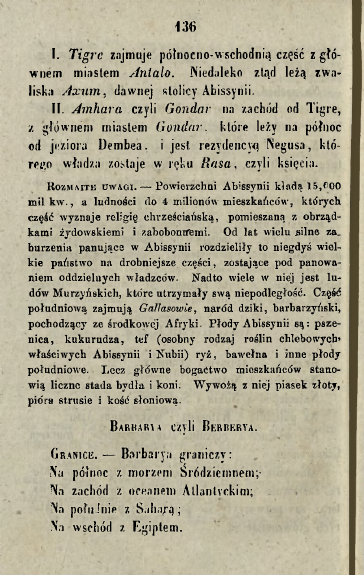 136
I. Tigre zajmuje północno-wschodnią część z głó-
wnem miastem Antalo. Niedaleko ztąd leżą zwa-
liska Axum, dawnej stolicy Abissynii.
II. Amhara czyli Gondar na zachód od Tigre,
z głównem miastem Gondar, które leży na północ
od jeziora Dembea, i jest rezydencyą Negusa, któ-
rego władza zostaje w ręku Rasa, czyli księcia.
Rozmaite uwagi. — Powierzchni Abissynii kładą 15,000
mil kw., a ludności do 4 milionów mieszkańców, których
część wyznaje religię chrześciańską, pomieszaną z obrząd-
kami żydowskiemi i zabobonnemi. Od lat wielu silne za-
burzenia panujące w Abissynii rozdzieliły to niegdyś wiel-
kie państwo na drobniejsze części, zostające pod panowa-
niem oddzielnych władzców. Nadto wiele w niej jest lu-
dów Murzyńskich, które utrzymały swą niepodległość. Część
południową zajmują Gallasowie, naród dziki, barbarzyński,
pochodzący ze środkowej Afryki. Płody Abissynii są: psze-
nica, kukurudza, tef (osobny rodzaj roślin chlebowych
właściwych Abissynii i Nubii) ryż, bawełna i inne płody
południowe. Lecz główne bogactwo mieszkańców stano-
wią liczne stada bydła i koni. Wywożą z niej piasek złoty,
pióra strusie i kość słoniową.
Barbarya czyli Berberya.
Granice. — Barbarya graniczy:
Na północ z morzem Śródziemnem;
Na zachód z oceanem Atlantyckim;
Na południe z Saharą;
Na wschód z Egiptem.